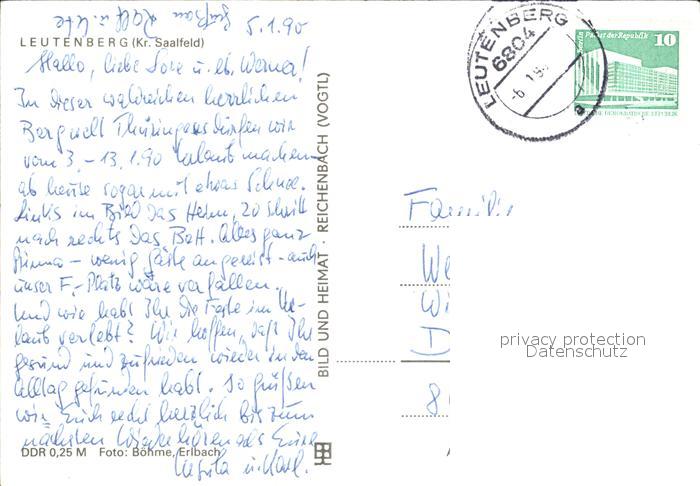 5.1.90
LEUTENBERG (Kr. Saalfeld)
Hallo, liebe Lore u. lb. Werner!
In dieser waldreichen herrlichen
Bergwelt Thüringens dürfen wir
vom 3. - 13.1.90 Urlaub machen -
ab heute sogar mit etwas Schnee.
Links im Bild das Heim, 20 Schritt
nach rechts das Bett. Alles ganz
prima - wenig Gäste angereist - auch
unser F.-Platz wäre verfallen.
Und wie habt Ihr die Feste im Ur-
laub verlebt? Wir hoffen, daß Ihr
gesund und zufrieden wieder in den
Alltag gefunden habt. So grüßen
wir Euch recht herzlich bis zum
nächsten Wiederhören als Eure
DDR 0,25 M Foto: Böhme, Erlbach
BILD UND HEIMAT · REICHENBACH (VOGTL)
LEUTENBERG
6804
-6. 1.9
a
Berlin Palast der Republik
10
DEUTSCHE DEMOKRATISCHE REPUBLIK
Famili
We
Wi
D
8
privacy protection
Datenschutz